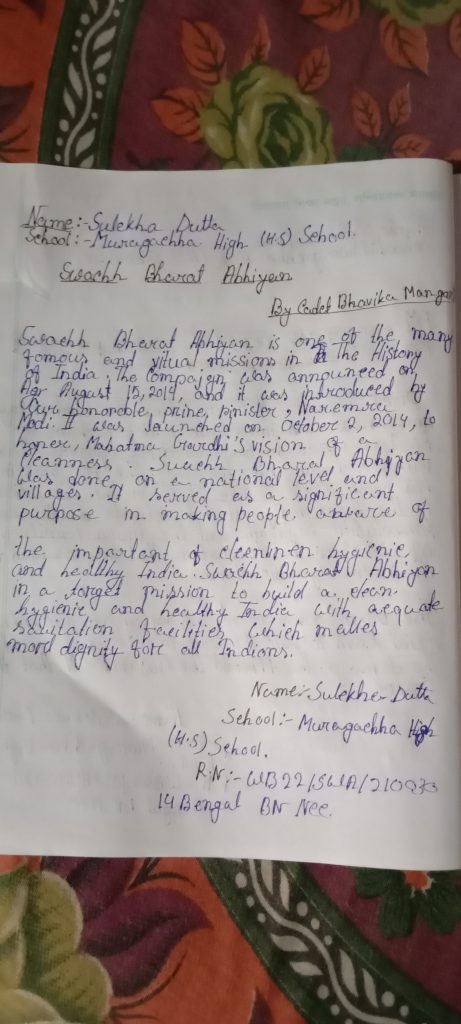 Name:-Sulekha Dutta
School:-Muragachha High (H.S) School.
Swachh Bharat Abhiyan
By Cadet Bhavika Mangan
Swachh Bharat Abhiyan is one of the many
fomous and vitual missions in the History
of India. The Compaign was announced on,
August 15, 2014, and it was introduced by
Our honorable, prine, pinister, Naremra
Modi. It was launched on October 2, 2014, to
honer, Mahatma Gourdhi's vision of a
Cleanness. Swachh Bharat Abhiyan
was done, on a national level and,
villages. It served as a significant
purpose in making people awware of
the important of cleenlinen hygienic,
and healthy India. Swachh Bharat Abhiyan
in a forget mission to build a clean
hygienic and healthy India with aequate
sauitation facilities which mattes
mord dignity fore all Indians.
Name:-Sulekha Dutta
School:- Muragachha High
(H.S) School.
R.N:- WB22/SWA/210930
14 Bengal BN Nec.